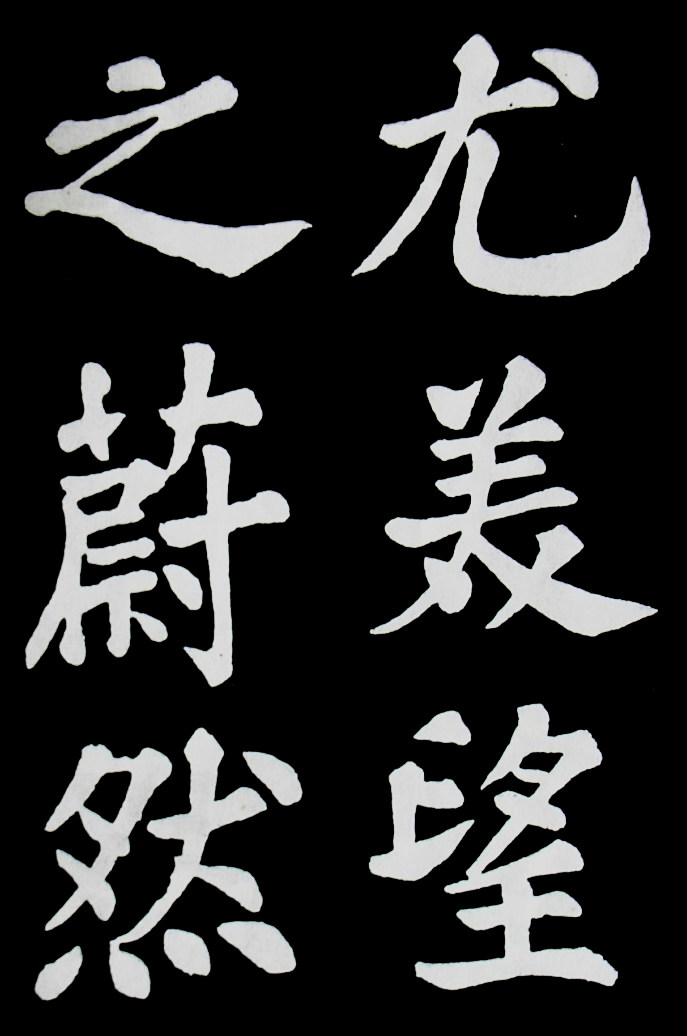 尤美望
之蔚然